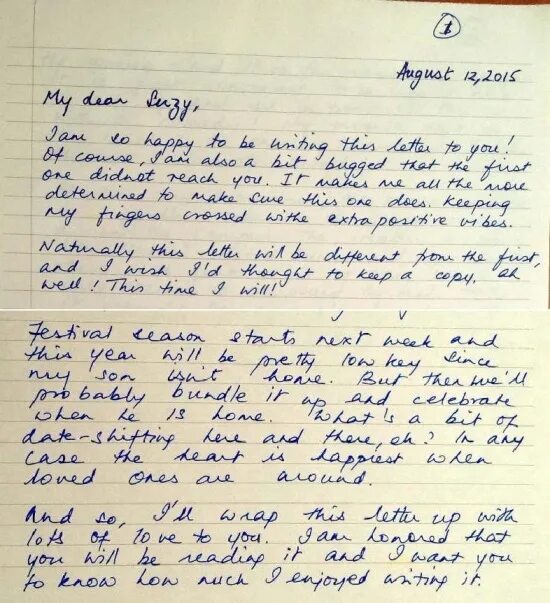 1
August 12, 2015
My dear Suzy,
I am so happy to be writing this letter to you!
Of course, I am also a bit bugged that the first
one didnot reach you. It makes me all the more
determined to make sure this one does. Keeping
my fingers crossed withe extra positive vibes.
Naturally this letter will be different from the first,
and I wish I'd thought to keep a copy. ah
well! This time I will!
Festival season starts next week and
this year will be pretty low key since
my son isn't home. But then we'll
probably bundle it up and celebrate
when he is home. What's a bit of
date-shifting here and there, eh? In any
case the heart is happiest when
loved ones are around.
And so, I'll wrap this letter up with
lots of love to you. I am honored that
you will be reading it and I want you
to know how much I enjoyed writing it.